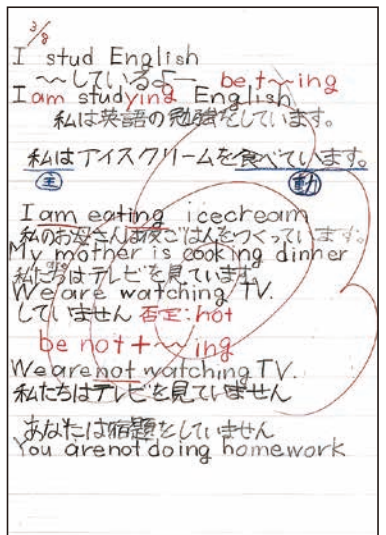 3/8
I stud English
〜〜しているよー be+〜ing
I am studying English
私は英語の勉強をしています。
私はアイスクリームを食べています。
主 動
I am eating icecream
私のお母さんは夜ごはんをつくっています。
My mother is cooking dinner
私たちはテレビを見ています。
We are watching TV.
していません 否定:not
be not+〜〜ing
We are not watching TV.
私たちはテレビを見ていません
あなたは宿題をしていません
You are not doing homework